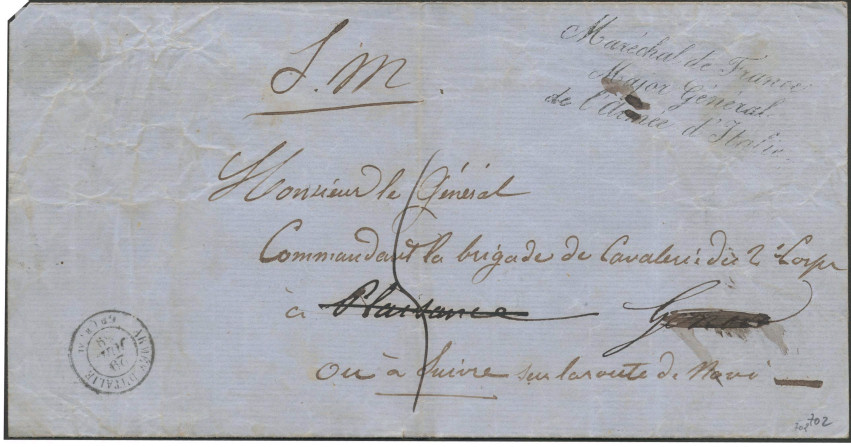 S. M.
Maréchal de France
Major Général
de l'Armée d'Italie
Monsieur le Général
Commandant la brigade de Cavalerie du 2e Corps
à Plaisance
ou à Suivre sur la route de Novi
ARMÉE D'ITALIE
702